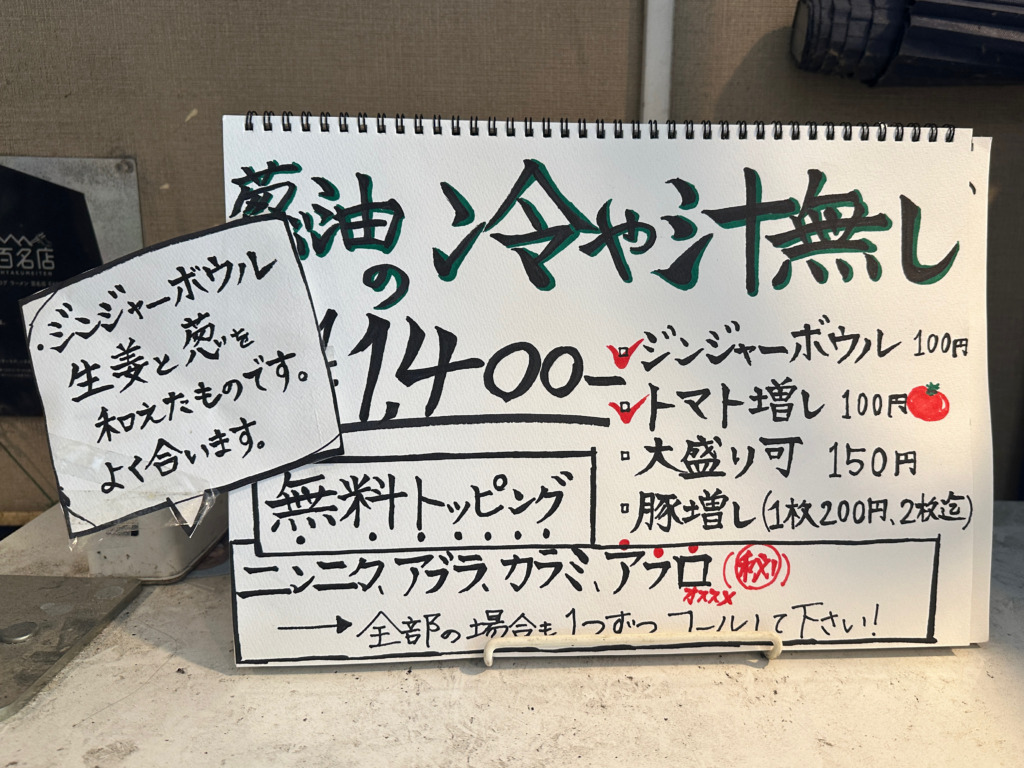 葱油の冷や汁無し
1,400ー
ジンジャーボウル 100円
トマト増し 100円
大盛り可 150円
豚増し(1枚200円、2枚迄)
無料トッピング
ニンニク、アブラ、カラミ、アブロ
オススメ
→全部の場合も1つずつコールして下さい!
ジンジャーボウル
生姜と葱を
和えたものです。
よく合います。
百名店